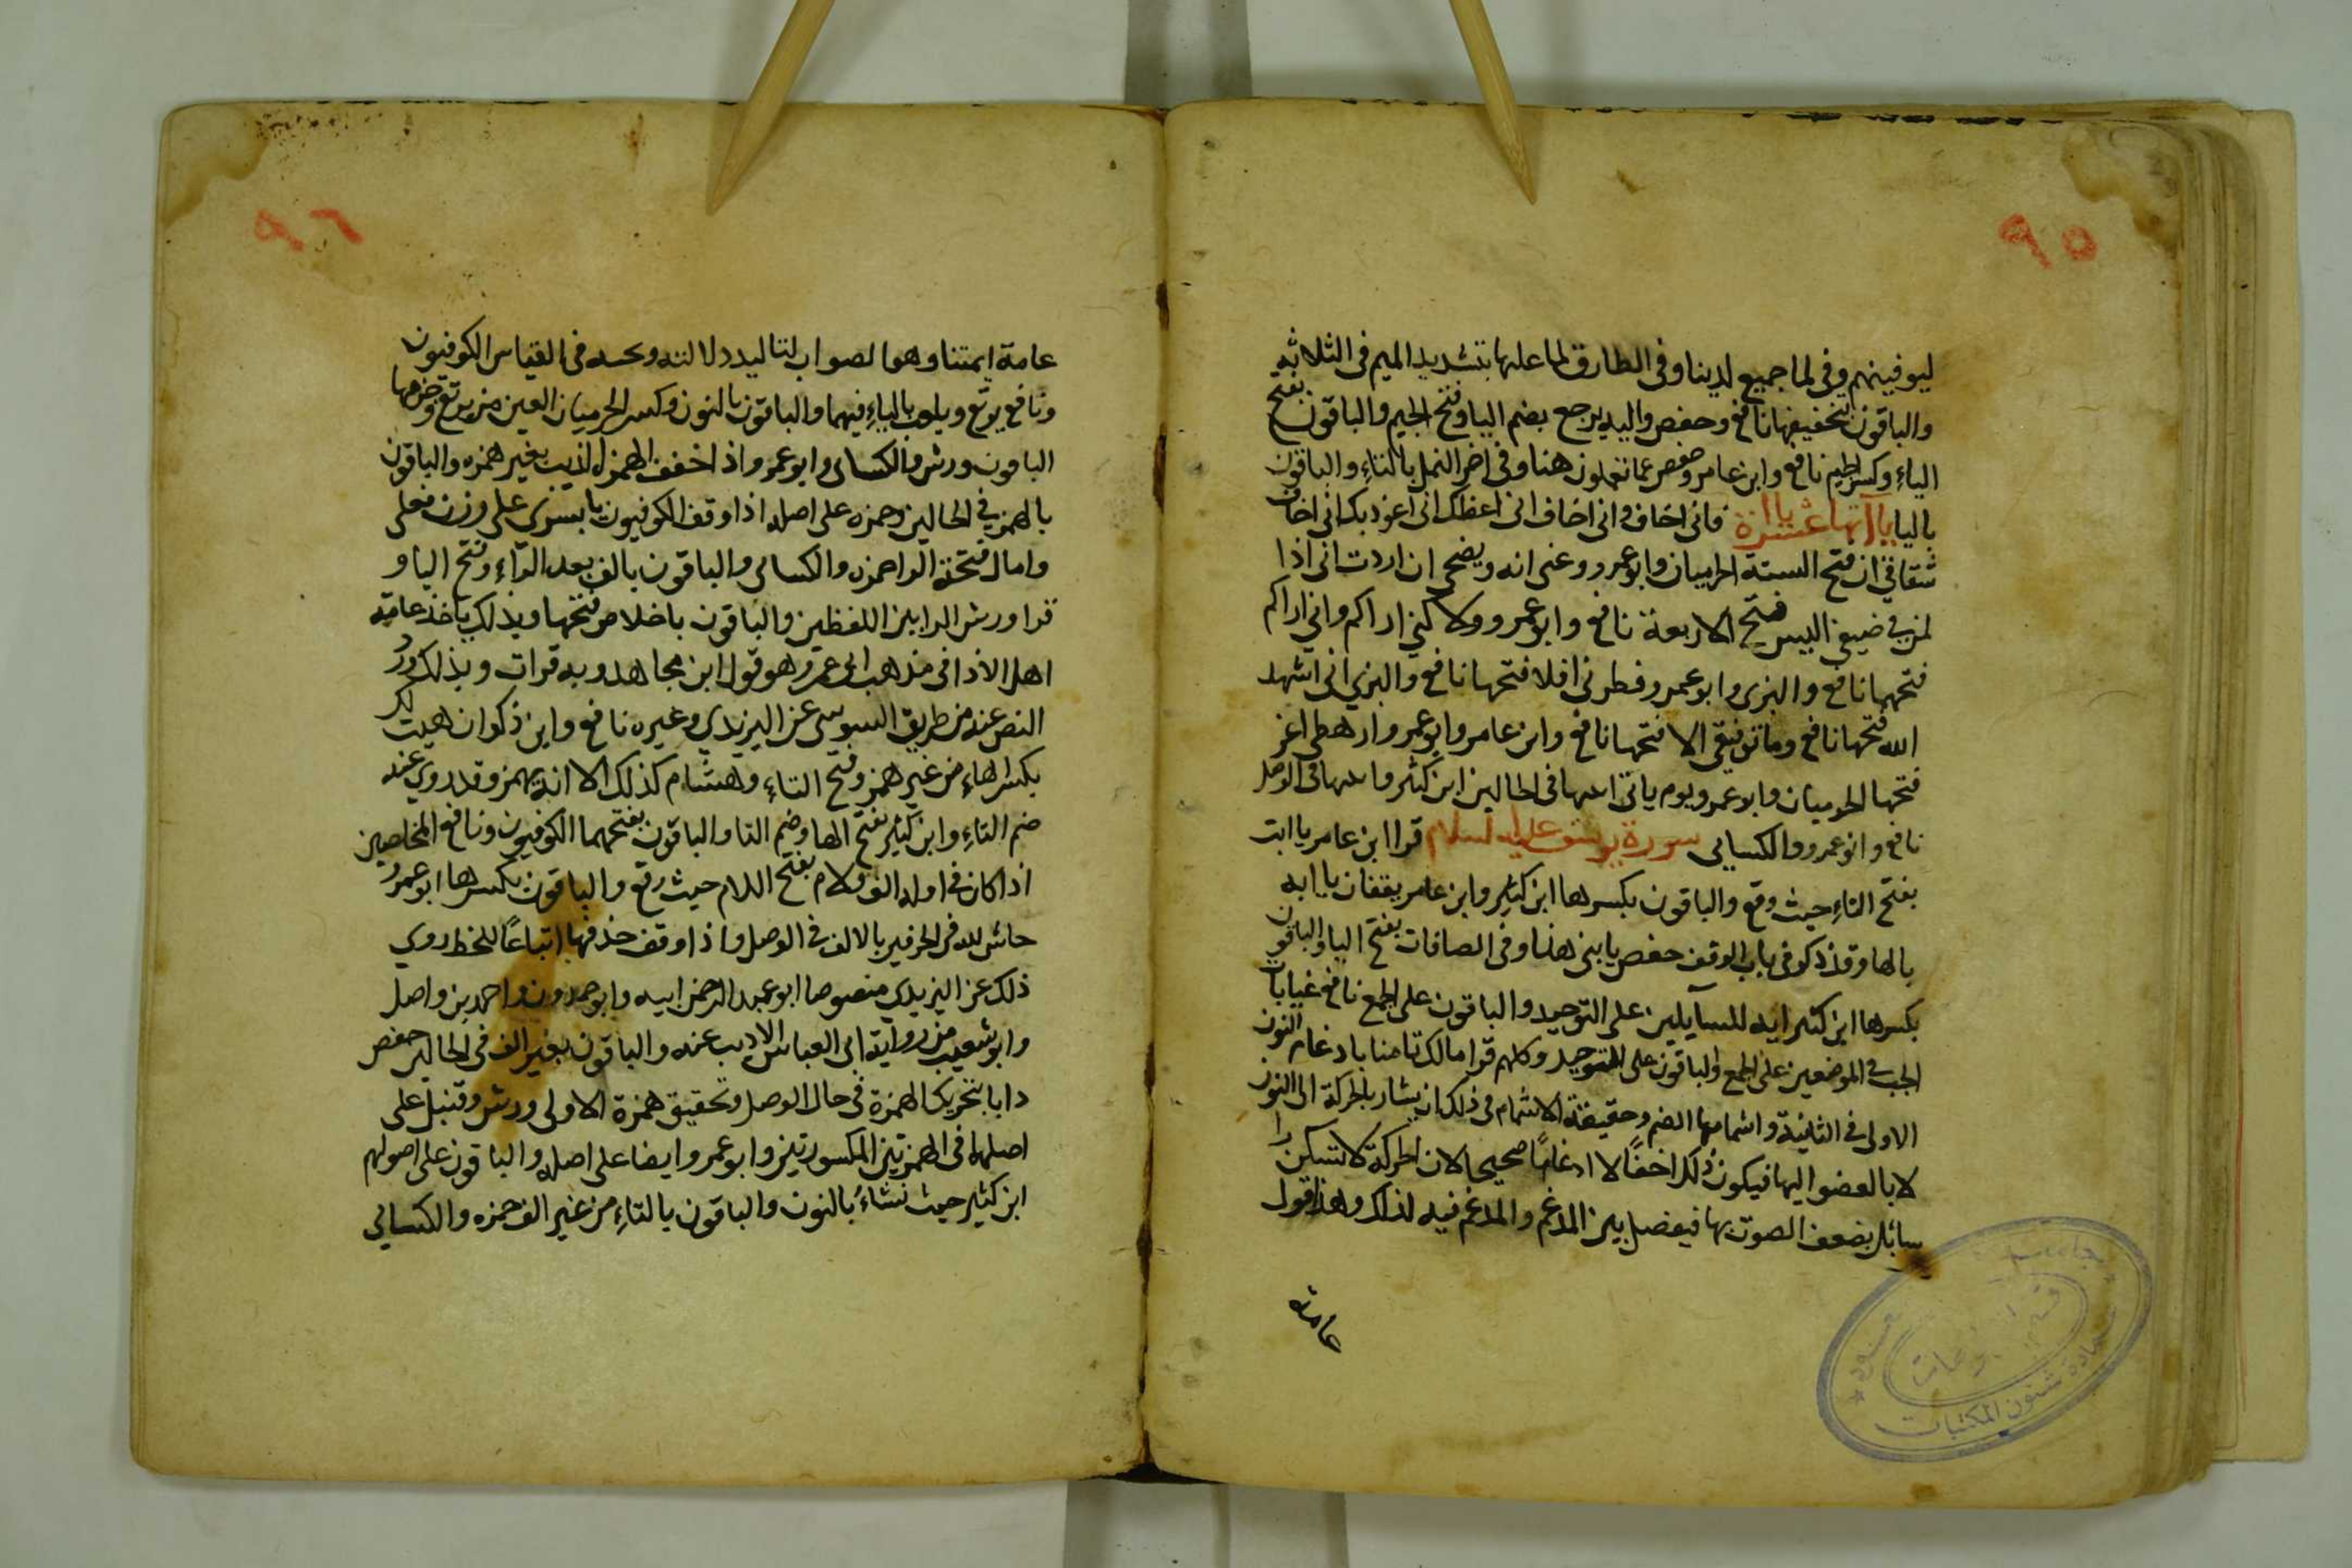 ٩٥
ليوفينهم وفي لما جميع لدينا وفى الطارق لما عليها بتشديد الميم فى الثلاثه
والباقون بتخفيفها نافع وحفص واليه يرجع بضم اليا وفتح الجيم والباقون بفتح
الياءِ وكسر الجيم نافع وابن عامر وحفص عما تعملون هنا وفى اخر النمل بالتاءِ والباقون
باليا ياآتها ثماني عشرة فانى اخاف وانى اخاف انى اعظك انى اعوذ بك انى اخاف
شقاقي ان فتح الستة الحرميان وابو عمرو وعنى انه ونصحي ان اردت انى اذا
لمن في ضيفي اليس فتح الاربعة نافع وابو عمرو ولاكني اراكم واني اراكم
فتحهما نافع والبزى وابو عمرو فطرنى افلا فتحها نافع والبزي انى اشهد
الله فتحها نافع وما توفيقى الا فتحها نافع وابن عامر وابو عمرو ارهطى اعز
فتحها الحرميان وابو عمرو ويوم ياتى اثبتها فى الحالين ابن كثير واثبتها فى الوصل
نافع وابو عمرو والكسايى سورة يوسف عليه السلام قرا ابن عامر يا ابت
بفتح التاءِ حيث وقع والباقون بكسرها ابن كثير وابن عامر يقفان يا ابه
بالها وقد ذكر فى باب الوقف حفص يا بنى هنا وفى الصافات بفتح اليا والباقون
بكسرها ابن كثير ايه للسآيلين على التوحيد والباقون على الجمع نافع غيابات
الجب في الموضعين على الجمع والباقون على التوحيد وكلهم قرا مالك تامنا بادغام النون
الاولى فى الثانية واشمامها الضم وحقيقة الاشمام فى ذلك ان يشار بالحركة الى النون
لا بالعضو اليها فيكون ذلك اخفًا لا ادغامًا صحيحا لان الحركة لا تسكن را
سائل يضعف الصوت بها فيفصل بين المدغم والمدغم فيه لذلك وهذا قول
عامة
عمادة شئون المكتبات
٩٦
عامة ايمتنا وهو الصواب لتاكيد دلالته وصحته فى القياس الكوفيون
ونافع يرتع ويلعب بالياءِ فيهما والباقون بالنون وكسر الحرميان العين من يرتع وجزمها
الباقون ورش والكسائى وابو عمرو اذا خفف الهمزه الذيب بغير همزه والباقون
بالهمز في الحالين وحمزه على اصله اذا وقف الكوفيون يا بشرى على وزن فعلى
وامال فتحة الرا حمزه والكسائى والباقون بالف بعد الرّاءِ وفتح اليا و
قرا ورش الرا بين اللفظين والباقون باخلاص فتحها وبذلك ياخذ عامة
اهل الادا فى مذهب ابى عمرو وهو قول ابن مجاهد وبه قرات وبذلك ورد
النص عنه من طريق السوسى عن اليزيدي وغيره نافع وابن ذكوان هيت لك
بكسر الهاءِ من غير همز وفتح التاءِ وهشام كذلك الا انه يهمز وقد روي عنه
ضم التاءِ وابن كثير بفتح الها وضم التا والباقون بفتحهما الكوفيون ونافع المخلصين
اذا كان فى اوله الف ولام بفتح اللام حيث وقع والباقون بكسرها ابو عمرو
حاش لله فى الحرفين بالالف في الوصل واذا وقف حذفها اتباعًا للخط روي
ذلك عن اليزيدى منصوصا ابو عبد الرحمن ابيه وابو حمدون واحمد بن واصل
وابو شعيب من رواية ابى العباس الاديب عنه والباقون بغير الف فى الحالين حفص
دابا بتحريك الهمزة فى حال الوصل وتحقيق همزة الاولى ورش وقنبل على
اصلهما فى الهمزتين المكسورتين وابو عمرو ايضا على اصله والباقون على اصولهم
ابن كثير حيث نشاءُ بالنون والباقون بالتاءِ من غير الف حمزه والكسائي